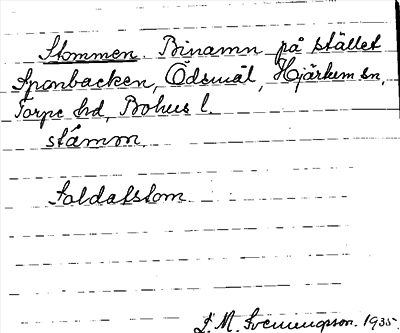 Stommen. Binamn på stället
Sponbacken, Ödsmål, Hjärtum sn,
Torpe hd, Bohus l.
ståmmn
Soldatstom
1935.